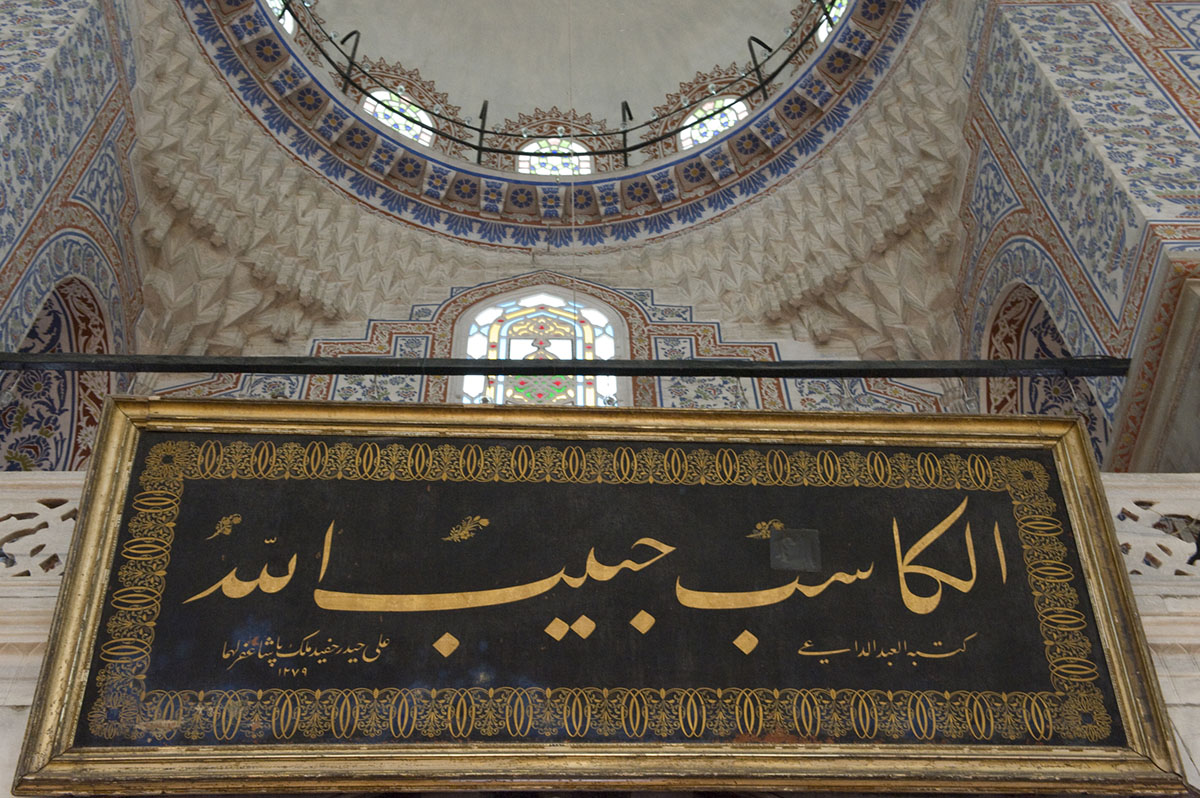 الكاسب حبيب الله
كتبه العبد الداعي
علی حیدر حفید ملك پاشا غفرلهما
١٢٧٩